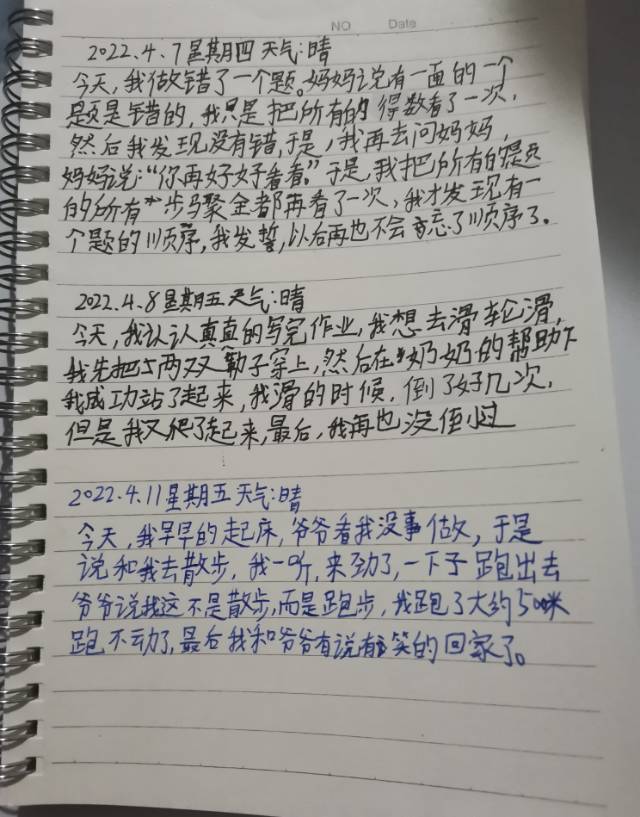 NO Date
2022.4.7星期四天气:晴
今天,我做错了一个题。妈妈说有一面的一个
题是错的,我只是把所有的得数看了一次,
然后我发现没有错,于是,我再去问妈妈,
妈妈说:“你再好好看看。”于是,我把所有的题
的所有步骤全都再看了一次,我才发现有一
个题的顺序,我发誓,以后再也不会忘了顺序了。
2022.4.8星期五天气:晴
今天,我认认真真的写完作业,我想去滑轮滑,
我先把两双鞋子穿上,然后在奶奶的帮助下
我成功站了起来,我滑的时候,倒了好几次,
但是我又爬了起来,最后,我再也没倒过
2022.4.11星期五天气:晴
今天,我早早的起床,爷爷看我没事做,于是
说和我去散步,我一听,来劲了,一下子跑出去
爷爷说我这不是散步,而是跑步,我跑了大约500米
跑不动了,最后我和爷爷有说有笑的回家了。